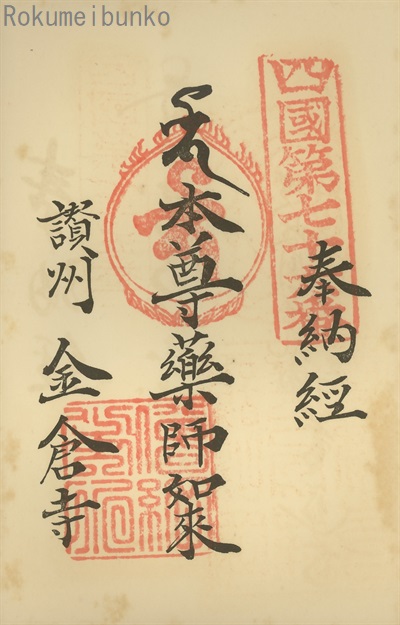 Rokumeibunko
四國第七十六番
奉納經
本尊藥師如來
讃州 金倉寺